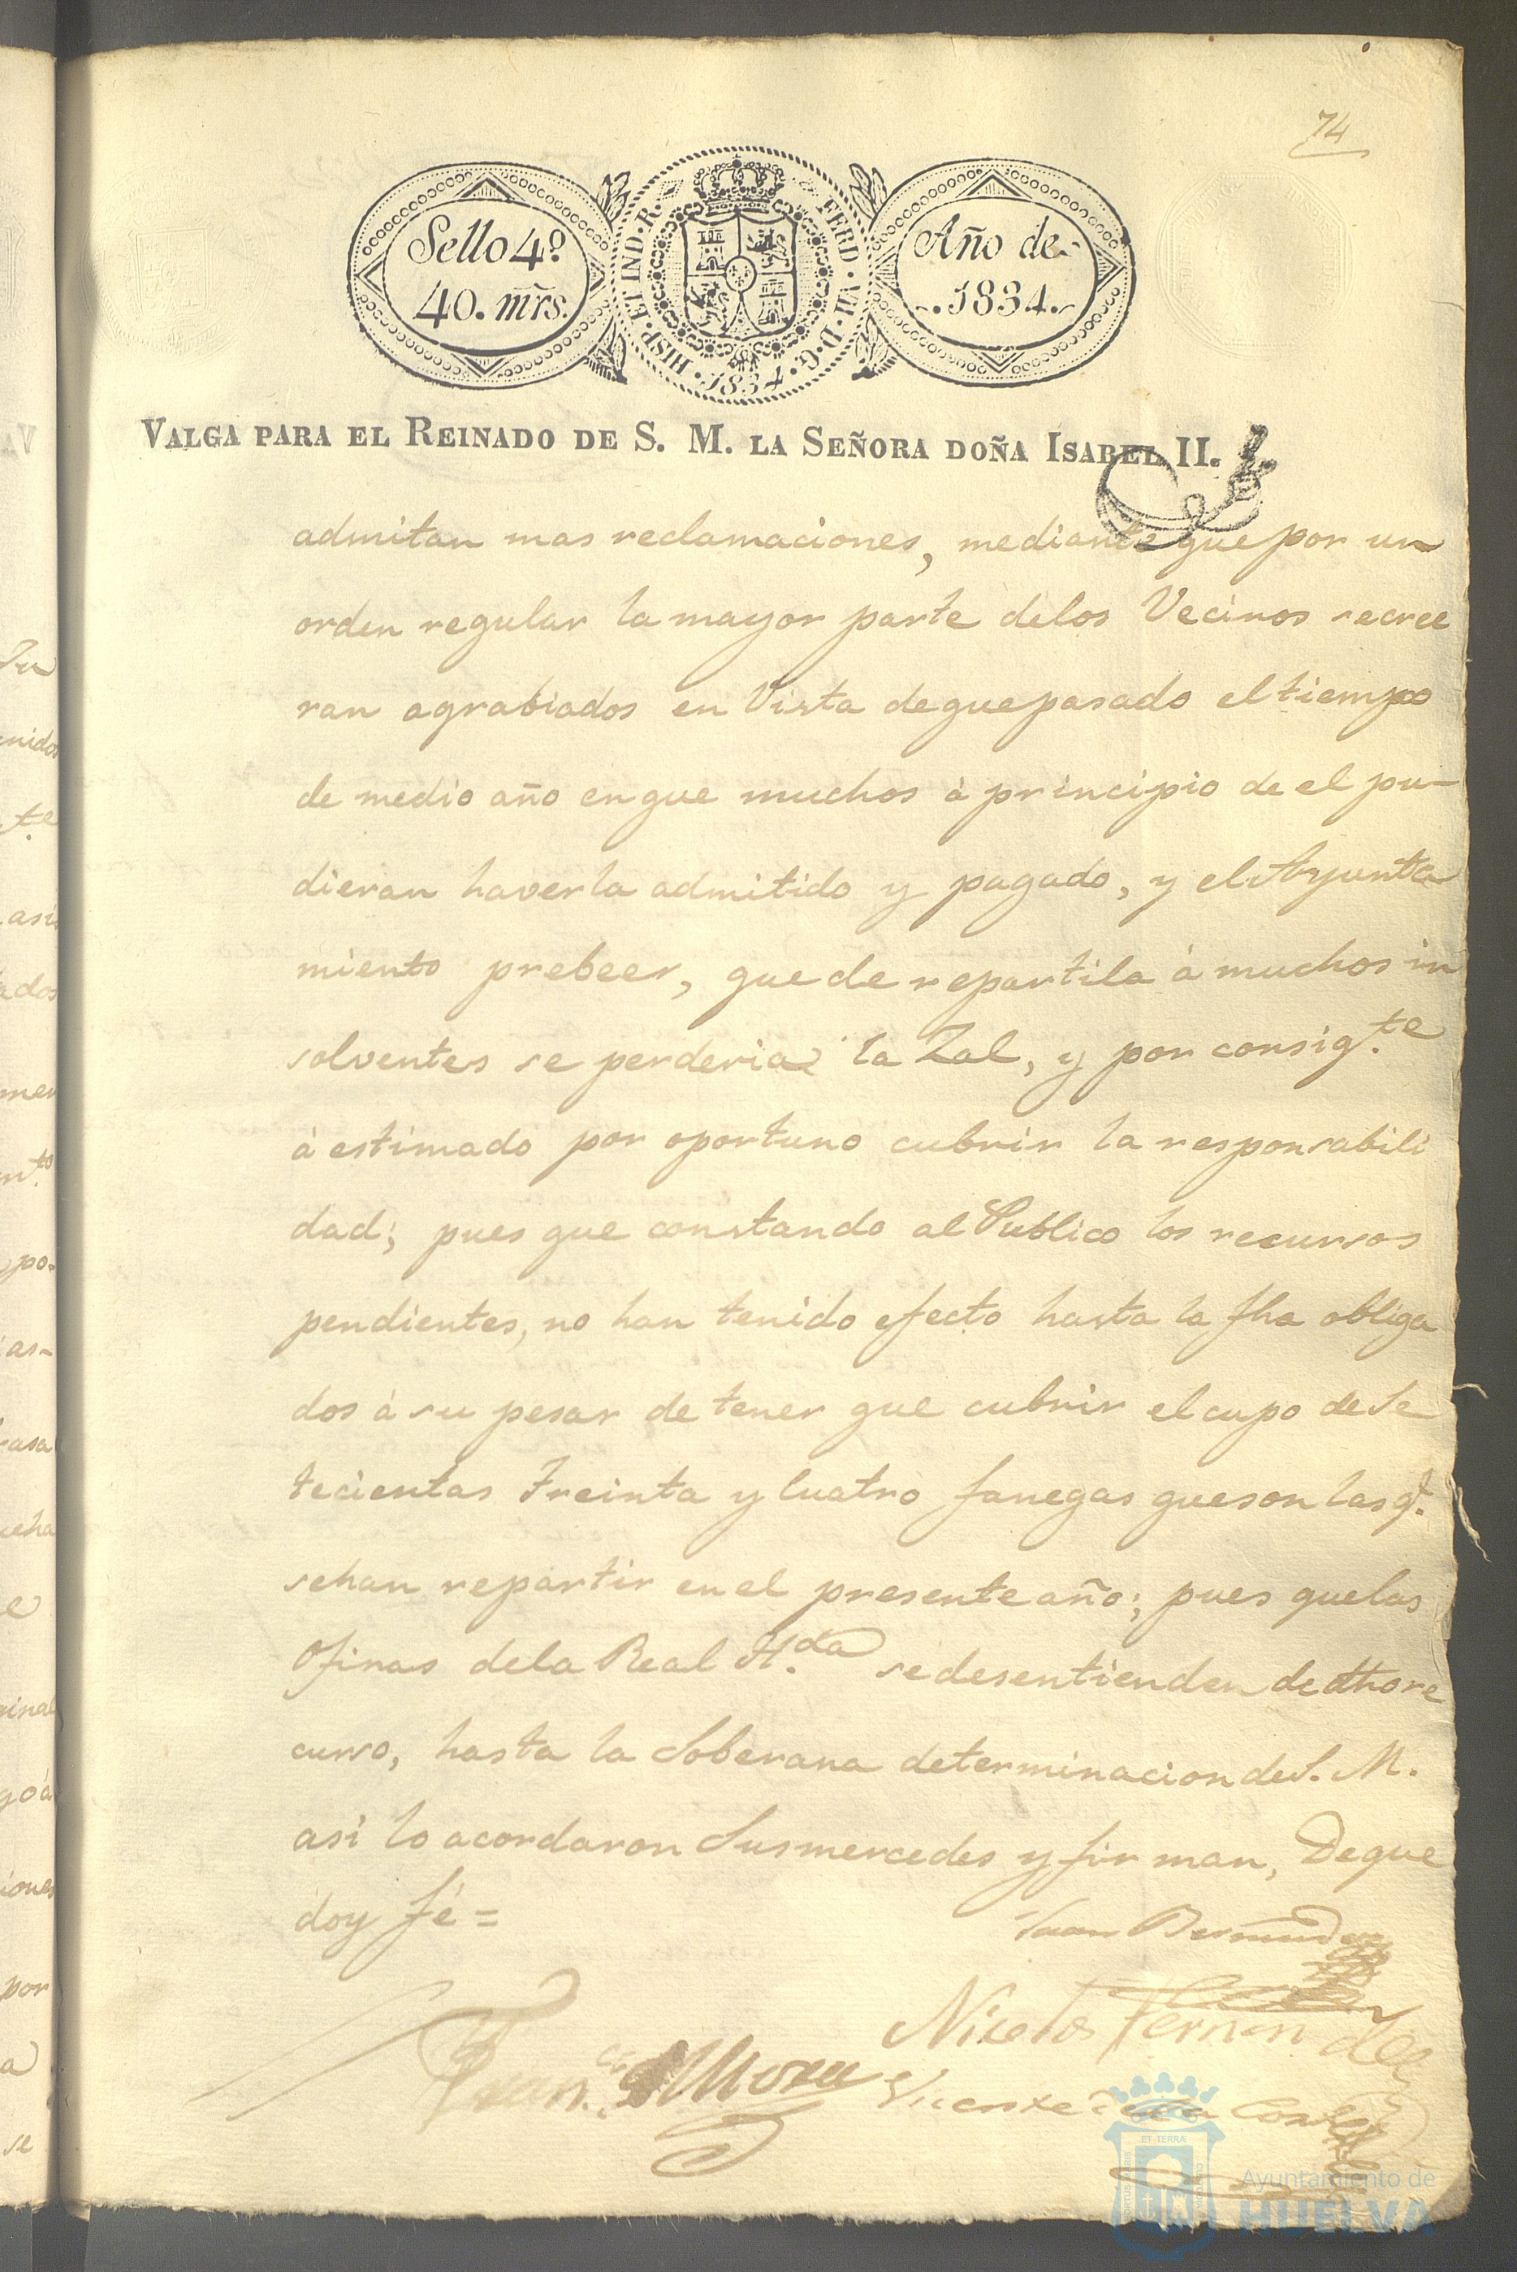 74
Sello 4º
40. mrs.
HISP. ET IND. R.
FERD. VII. D. G.
1834
Año de
1834.
VALGA PARA EL REINADO DE S. M. LA SEÑORA DOÑA ISABEL II.
admitan mas reclamaciones, mediante que por un
orden regular la mayor parte delos Vecinos secree
ran agrabiados en Vista deque pasado el tiempo
de medio año enque muchos à principio de el pu-
dieran haverla admitido y pagado, y el Ayunta
miento prebeer, que de repartila à muchos in
solventes se perderia la Zal, y por consig.te
à estimado por oportuno cubrir la responsabili
dad; pues que constando al Publico los recursos
pendientes, no han tenido efecto hasta la fha obliga
dos à su pesar de tener que cubrir el cupo de Se
tecientas Treinta y Cuatro fanegas queson las q.e
sehan repartir en el presente año; pues quelas
Ofinas dela Real H.da sedesentienden de dho re
curso, hasta la Soberana determinacion de S. M.
asi lo acordaron Susmercedes y firman, Deque
doy fé =
Juan Bermudez
Niceto Fernandez
Fran.co Mora
Vicente de la Corte
Ayuntamiento de
HUELVA